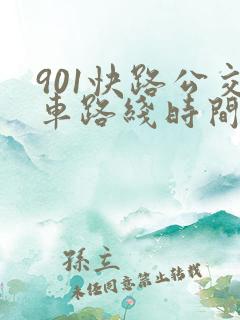 901快路公交
車路綫時間
孫立
未经同意禁止转载